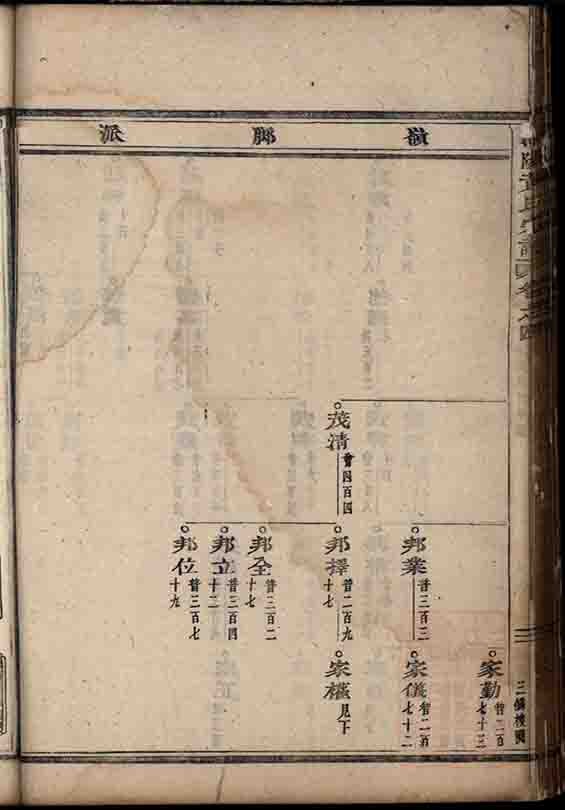 嶺腳派
茂清
晉四百四
邦業
晉三百三
邦擇
晉二百九
十七
邦全
晉三百二
十七
邦立
晉三百四
十二
邦位
晉三百七
十九
家勤
晉二百
七十三
家儀
晉二百
七十二
家權
見下